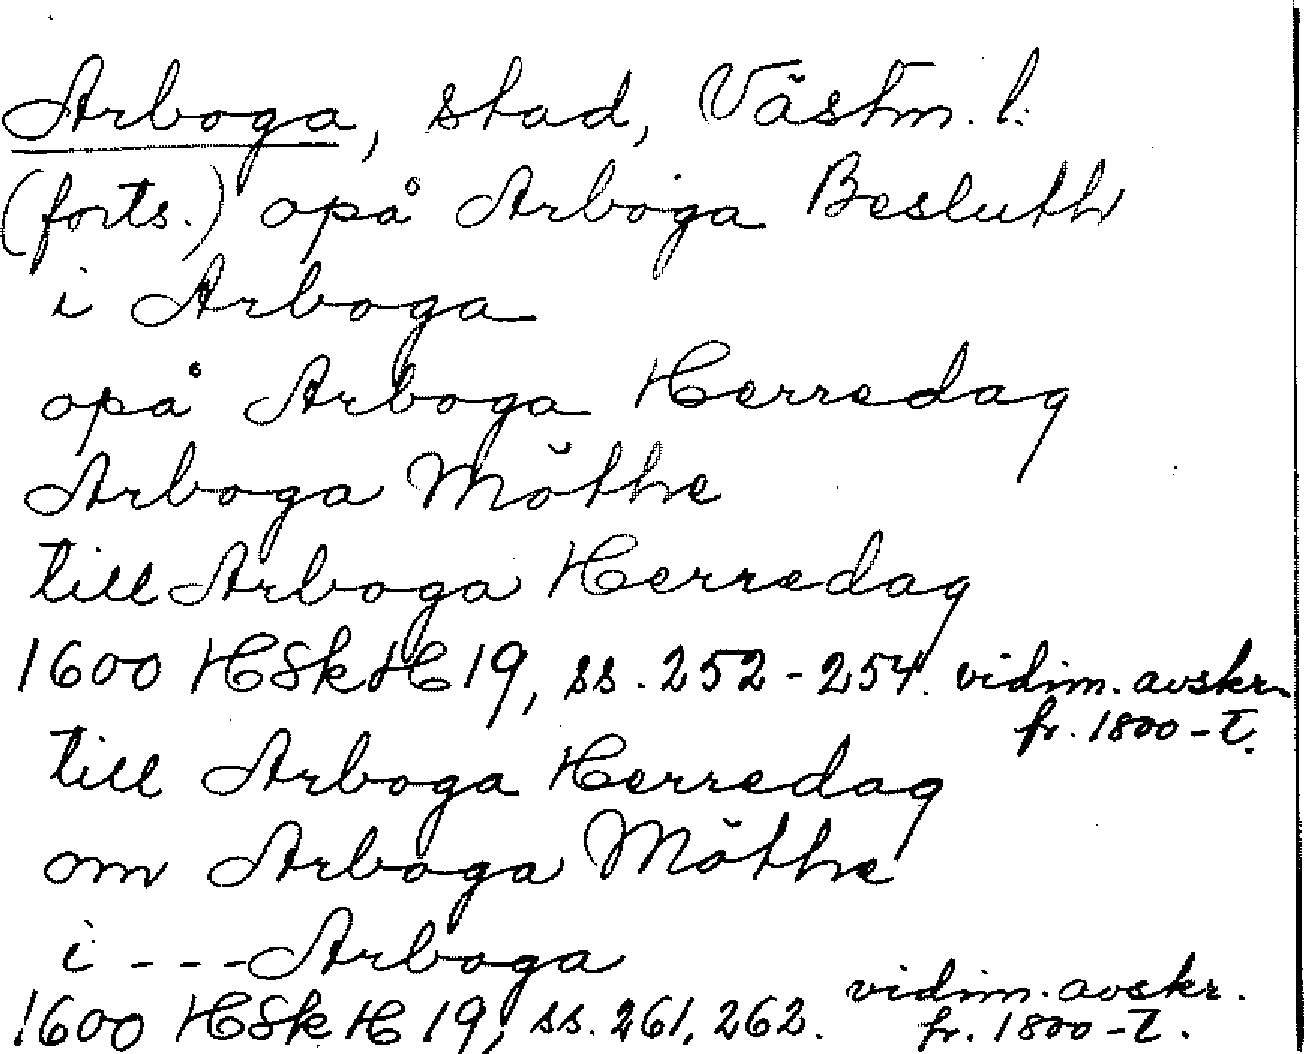 Arboga, stad, Västm. l.
(forts.) opå Arboga Besluth
i Arboga
opå Arboga Herredag
Arboga Möthe
till Arboga Herredag
1600 HSk H 19, ss. 252-254. vidim. avskr.
fr. 1800-t.
till Arboga Herredag
om Arboga Möthe
i --- Arboga
1600 HSk H 19, ss. 261, 262. vidim. avskr.
fr. 1800-t.